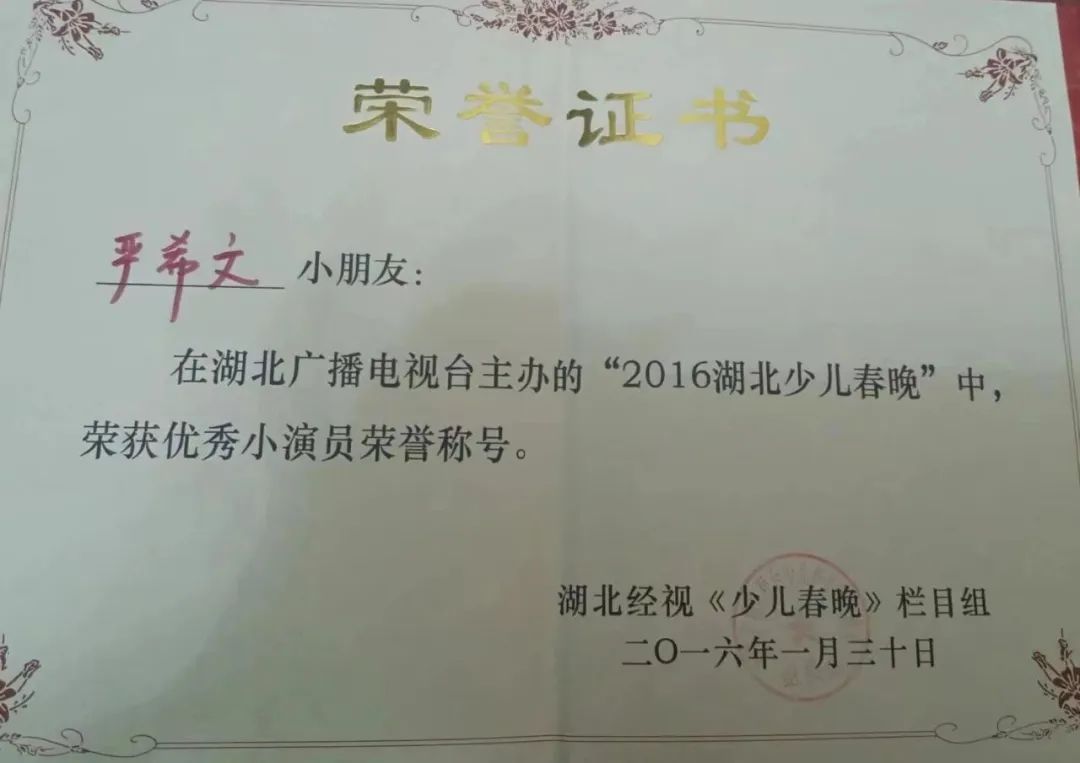 荣誉证书
严希文 小朋友：
在湖北广播电视台主办的“2016湖北少儿春晚”中，
荣获优秀小演员荣誉称号。
湖北经视《少儿春晚》栏目组
二〇一六年一月三十日